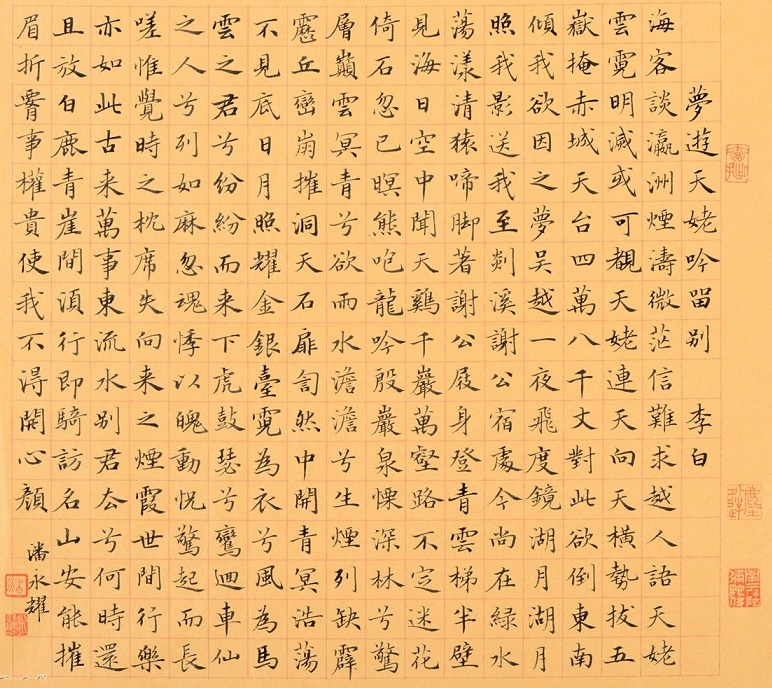 夢遊天姥吟留别 李白
海客談瀛洲煙濤微茫信難求越人語天姥
雲霓明滅或可覩天姥連天向天橫勢拔五
嶽掩赤城天台四萬八千丈對此欲倒東南
傾我欲因之夢吳越一夜飛度鏡湖月湖月
照我影送我至剡溪謝公宿處今尚在綠水
蕩漾清猿啼脚著謝公屐身登青雲梯半壁
見海日空中聞天鷄千巖萬壑路不定迷花
倚石忽已暝熊咆龍吟殷巖泉慄深林兮驚
層巔雲冥青兮欲而水澹澹兮生煙列缺霹
靂丘巒崩摧洞天石扉訇然中開青冥浩蕩
不見底日月照耀金銀臺霓為衣兮風為馬
雲之君兮紛紛而来下虎鼓瑟兮鸞迴車仙
之人兮列如麻忽魂悸以魄動怳驚起而長
嗟惟覺時之枕席失向来之煙霞世間行樂
亦如此古来萬事東流水别君去兮何時還
且放白鹿青崖間須行即騎訪名山安能摧
眉折腰事權貴使我不得開心顔
潘永耀